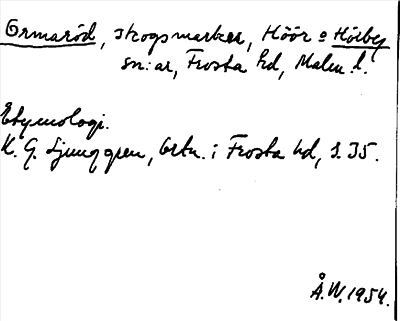 Ormaröd, skogsmarker, Höör o Hörby
sn:ar, Frosta hd, Malm. l.
Etymologi.
K. G. Ljunggren, Ortn. i Frosta hd, s. 35.
Å. W. 1954.